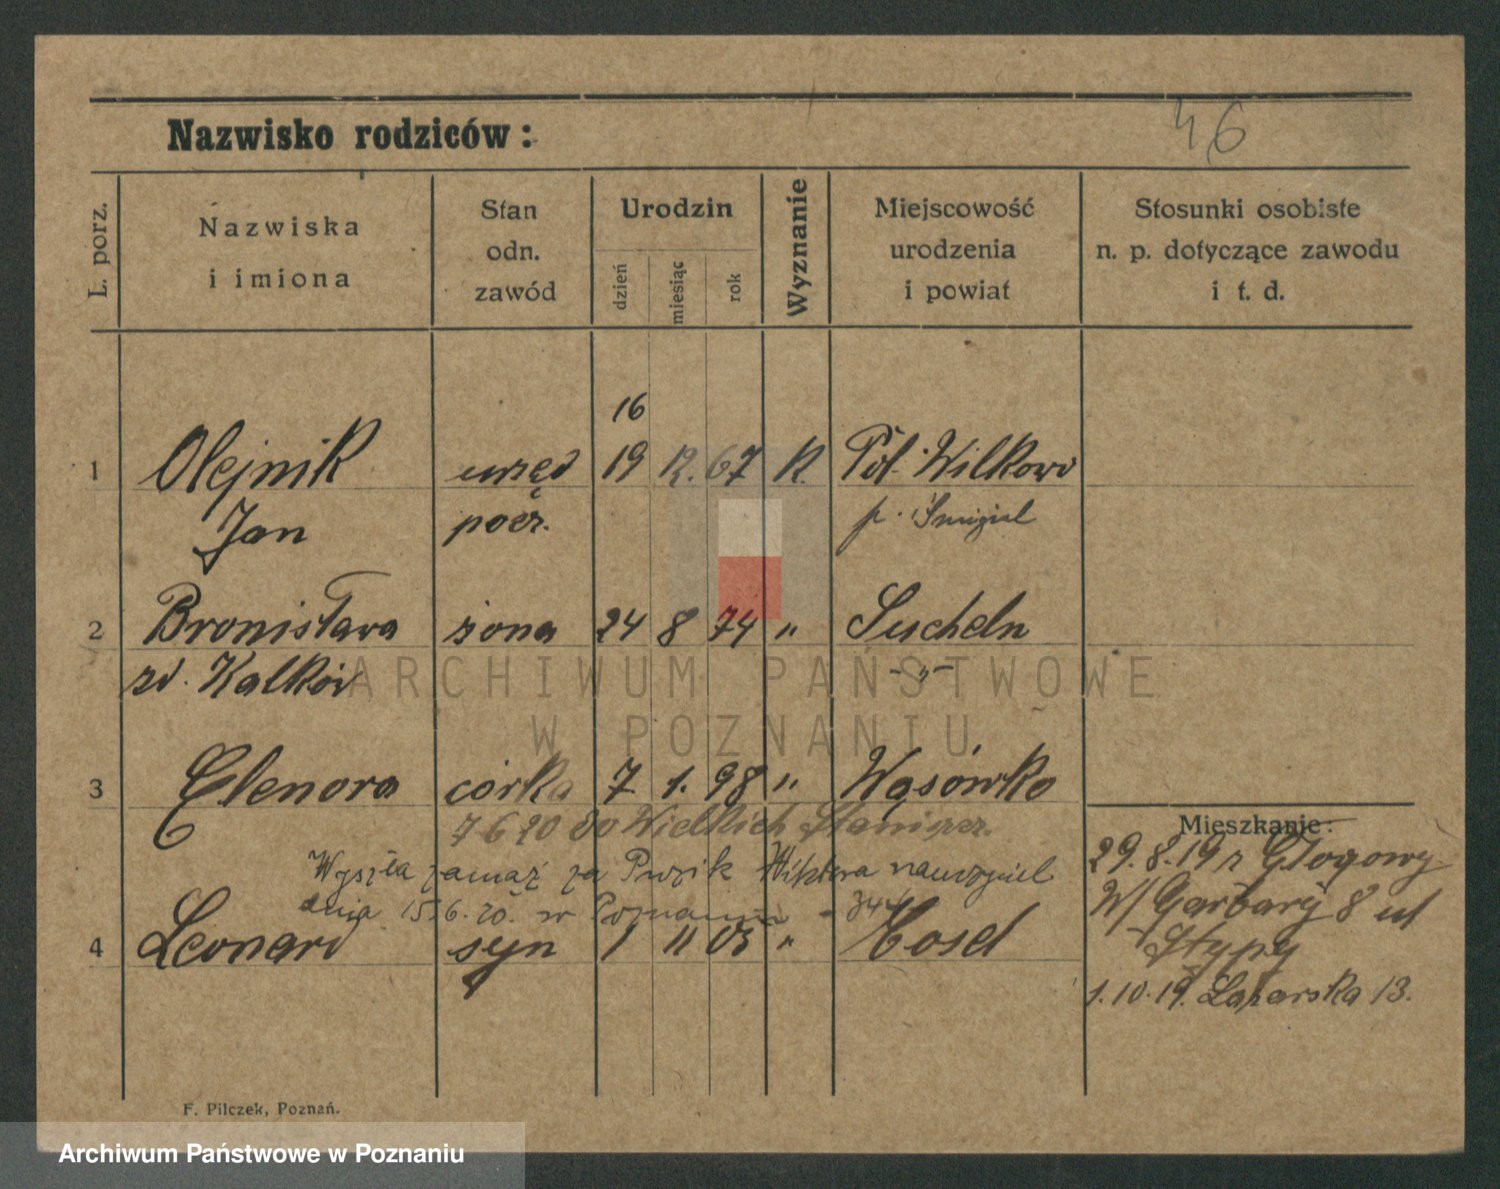 46
Nazwisko rodziców:
L. porz.
Nazwiska
i imiona
Stan
odn.
zawód
Urodzin
dzień
miesiąc
rok
Wyznanie
Miejscowość
urodzenia
i powiat
Stosunki osobiste
n. p. dotyczące zawodu
i t. d.
16
1 Olejnik urzęd 19 12. 67 K. Pol. Wilkowo
Jan pocz. p. Śmigiel
2 Bronisława żona 24 8 74 " Sucheln
zd. Kalków - " -
ARCHIWUM PAŃSTWOWE
W POZNANIU
3 Elenora córka 7. 1. 98 " Wąsówko
7 6 20 do Wielkich
Mieszkanie:
Wyszła zamąż za Wiktora nauczyciel
dnia 15.6.20. w Poznaniu - 344
4 Leonard syn 1 11 05 " Kosel
29.8.19 z Głogowy
W/Garbary 8 ul
1.10.19. Łazarska 13.
F. Pilczek, Poznań.
Archiwum Państwowe w Poznaniu